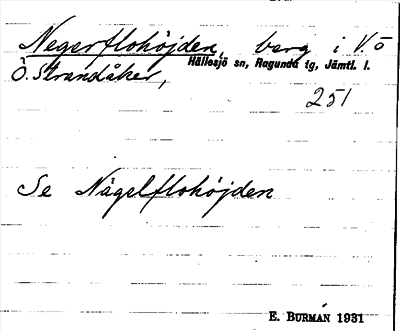 Negerflohöjden, berg i V. ö
Hällesjö sn, Ragunda tg, Jämtl. l.
Ö. Strandåker,
251
Se Någelflohöjden
E. BURMAN 1931